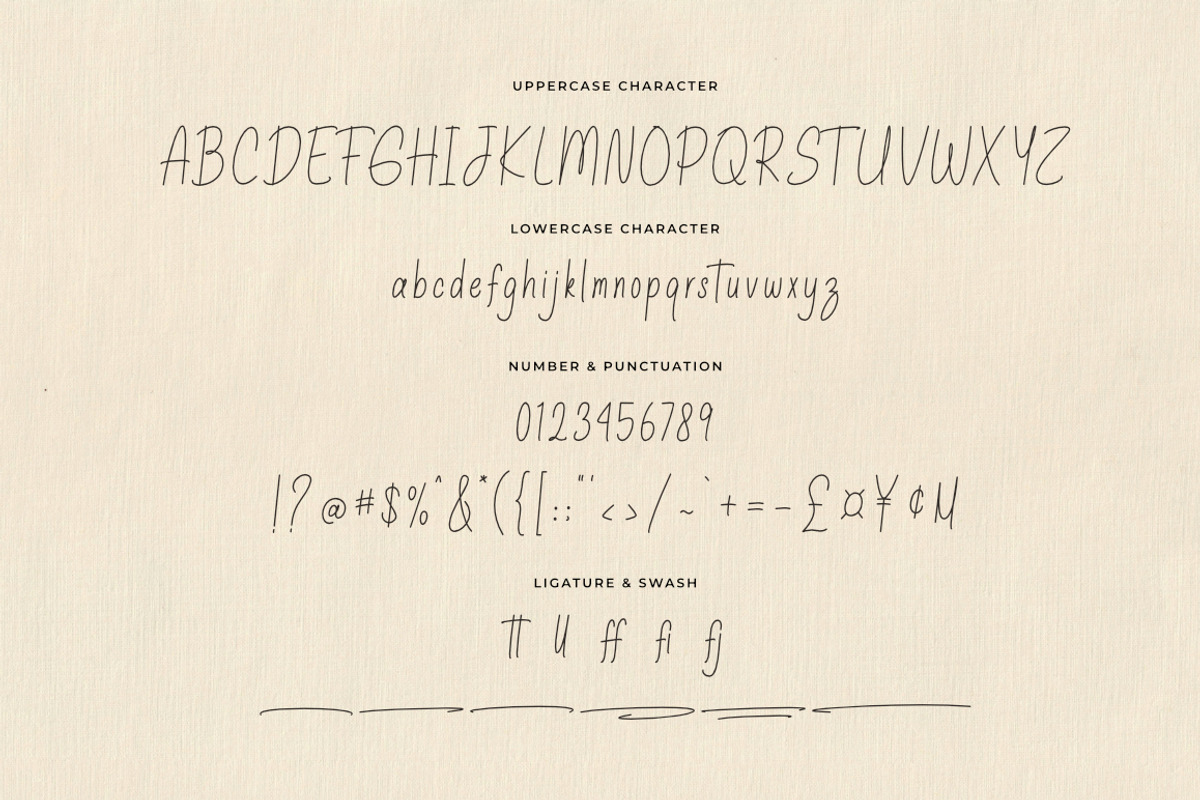 UPPERCASE CHARACTER
ABCDEFGHIJKLMNOPQRSTUVWXYZ
LOWERCASE CHARACTER
abcdefghijklmnopqrstuvwxyz
NUMBER & PUNCTUATION
0123456789
!?@#$%^&*({[:;"'<>/~`+=-£¤¥¢M
LIGATURE & SWASH
tt ll ff fi fj